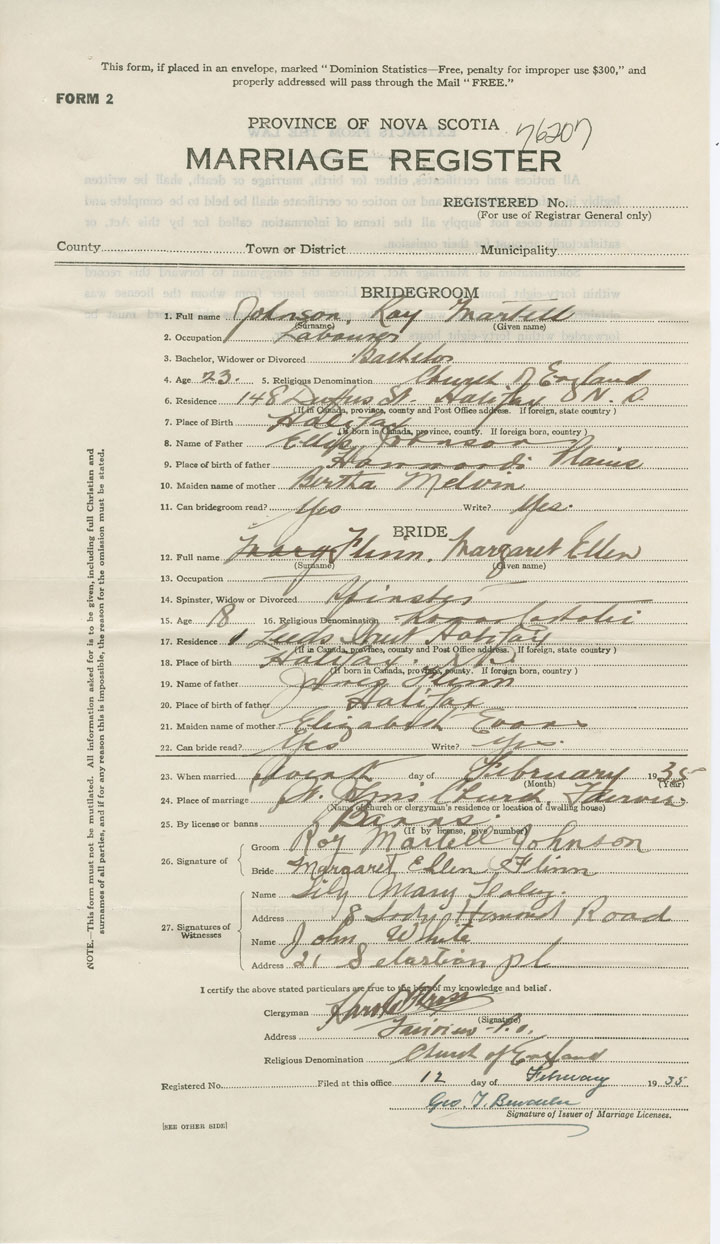 This form, if placed in an envelope, marked "Dominion Statistics—Free, penalty for improper use $300," and
properly addressed will pass through the Mail "FREE."
FORM 2
PROVINCE OF NOVA SCOTIA 76207
MARRIAGE REGISTER
REGISTERED No.
(For use of Registrar General only)
County Town or District Municipality
BRIDEGROOM
1. Full name Johnson, Roy Martell
(Surname) (Given name)
2. Occupation Labourer
3. Bachelor, Widower or Divorced Bachelor
4. Age 23. 5. Religious Denomination Church of England
6. Residence 148 Duffus St. Halifax N. S
(If in Canada, province, county and Post Office address. If foreign, state country)
7. Place of Birth Halifax
(If born in Canada, province, county. If foreign born, country)
8. Name of Father Johnson
9. Place of birth of father Hammonds Plains
10. Maiden name of mother Bertha Melvin
11. Can bridegroom read? Yes Write? Yes.
BRIDE
12. Full name Mary Flinn, Margaret Ellen
(Surname) (Given name)
13. Occupation
14. Spinster, Widow or Divorced Spinster
15. Age 18 16. Religious Denomination Roman Catholic
17. Residence 1 Leeds Street Halifax
(If in Canada, province, county and Post Office address. If foreign, state country)
18. Place of birth Halifax. N.S.
(If born in Canada, province, county. If foreign born, country)
19. Name of father James Flinn
20. Place of birth of father Halifax
21. Maiden name of mother Elizabeth Evans
22. Can bride read? Yes Write? Yes.
23. When married day of February 1935
(Month) (Year)
24. Place of marriage St. Church,
(Name of church or clergyman's residence or location of dwelling house)
25. By license or banns Banns.
(If by license, give number)
26. Signature of Groom Roy Martell Johnson
Bride Margaret Ellen Flinn
27. Signatures of Witnesses Name Lily Mary
Address 18 Lady Hamond Road
Name John White
Address 21 pl
I certify the above stated particulars are true to the best of my knowledge and belief.
Clergyman
(Signature)
Address Fairview P.O.
Religious Denomination Church of England
Registered No. Filed at this office 12 day of February 1935
Geo. T.
Signature of Issuer of Marriage Licenses.
[SEE OTHER SIDE]
NOTE.—This form must not be mutilated. All information asked for is to be given, including full Christian and
surnames of all parties, and if for any reason this is impossible, the reason for the omission must be stated.